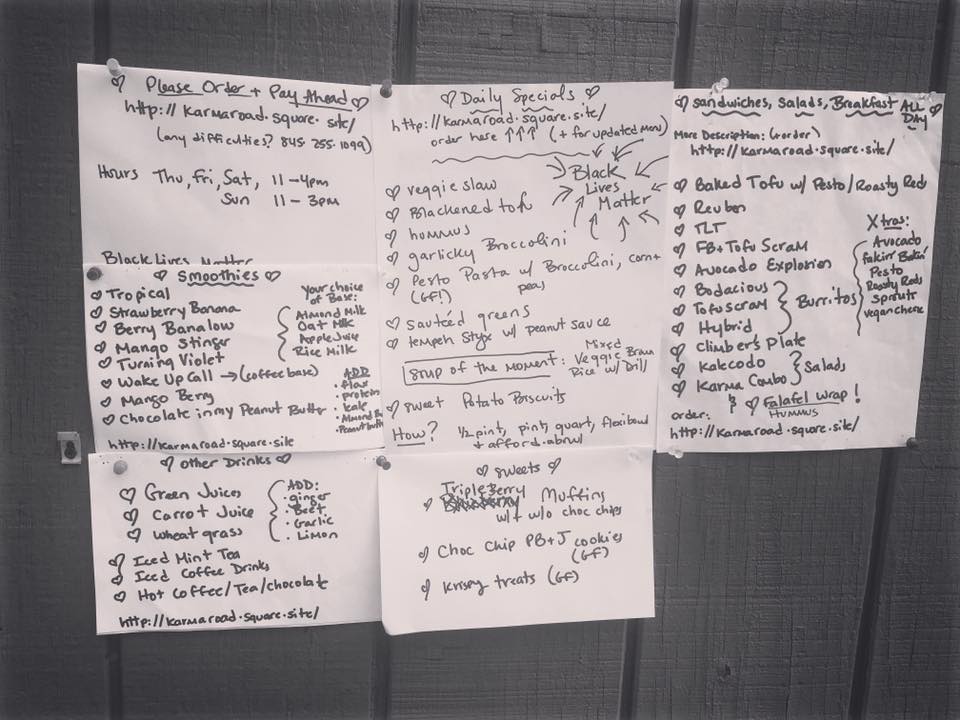 ♡ Please Order + Pay Ahead ♡
http://karmaroad.square.site/
(any difficulties? 845.255.1099)
Hours Thu, Fri, Sat, 11-4pm
Sun 11-3pm
Black Lives Matter
♡ Smoothies ♡
♡ Tropical
♡ Strawberry Banana
♡ Berry Banalow
♡ Mango Stinger
♡ Turning Violet
♡ Wake Up Call → (coffee base)
♡ Mango Berry
♡ Chocolate in my Peanut Butter
Your choice
of Base:
Almond Milk
Oat Milk
Apple Juice
Rice Milk
ADD
• flax
• protein
• kale
• Almond Bu
• Peanut butt
http://karmaroad.square.site
♡ other Drinks ♡
♡ Green Juices
♡ Carrot Juice
♡ wheatgrass
ADD:
• ginger
• Beet
• Garlic
• Limon
♡ Iced Mint Tea
♡ Iced Coffee Drinks
♡ Hot Coffee/Tea/chocolate
http://karmaroad.square.site/
♡ Daily Specials ♡
http://karmaroad.square.site/
order here ↑↑↑ (+ for updated menu)
Black
Lives
Matter
♡ veggie slaw
♡ Blackened tofu
♡ hummus
♡ garlicky Broccolini
♡ Pesto Pasta w/ Broccolini, corn +
(GF!) peas
♡ sautéed greens
♡ tempeh styx w/ peanut sauce
Soup of the moment: Mixed
Veggie Brown
Rice w/ Dill
♡ sweet Potato Poiscuits
How? 1/2 pint, pint, quart, flexibowl
+ afford-abowl
♡ sweets ♡
Tripleberry
♡ Muffins
w/ + w/o choc chips
♡ Choc Chip PB+J cookies
(GF)
♡ Krispy treats (GF)
♡ sandwiches, Salads, Breakfast ALL DAY ♡
More Description: (+order)
http://karmaroad.square.site/
♡ Baked Tofu w/ Pesto/Roasty Reds
♡ Reuben
♡ TLT
♡ FB+Tofu Scram
♡ Avocado Explosion
♡ Bodacious
♡ Tofuscram
♡ Hybrid
Burritos
♡ Climber's Plate
♡ Kalecodo
♡ Karma Combo
Salads
& ♡ Falafel Wrap!
Hummus
Xtras:
Avocado
fakin' Bakin'
Pesto
Roasty Reds
sprouts
vegan cheese
order:
http://karmaroad.square.site/